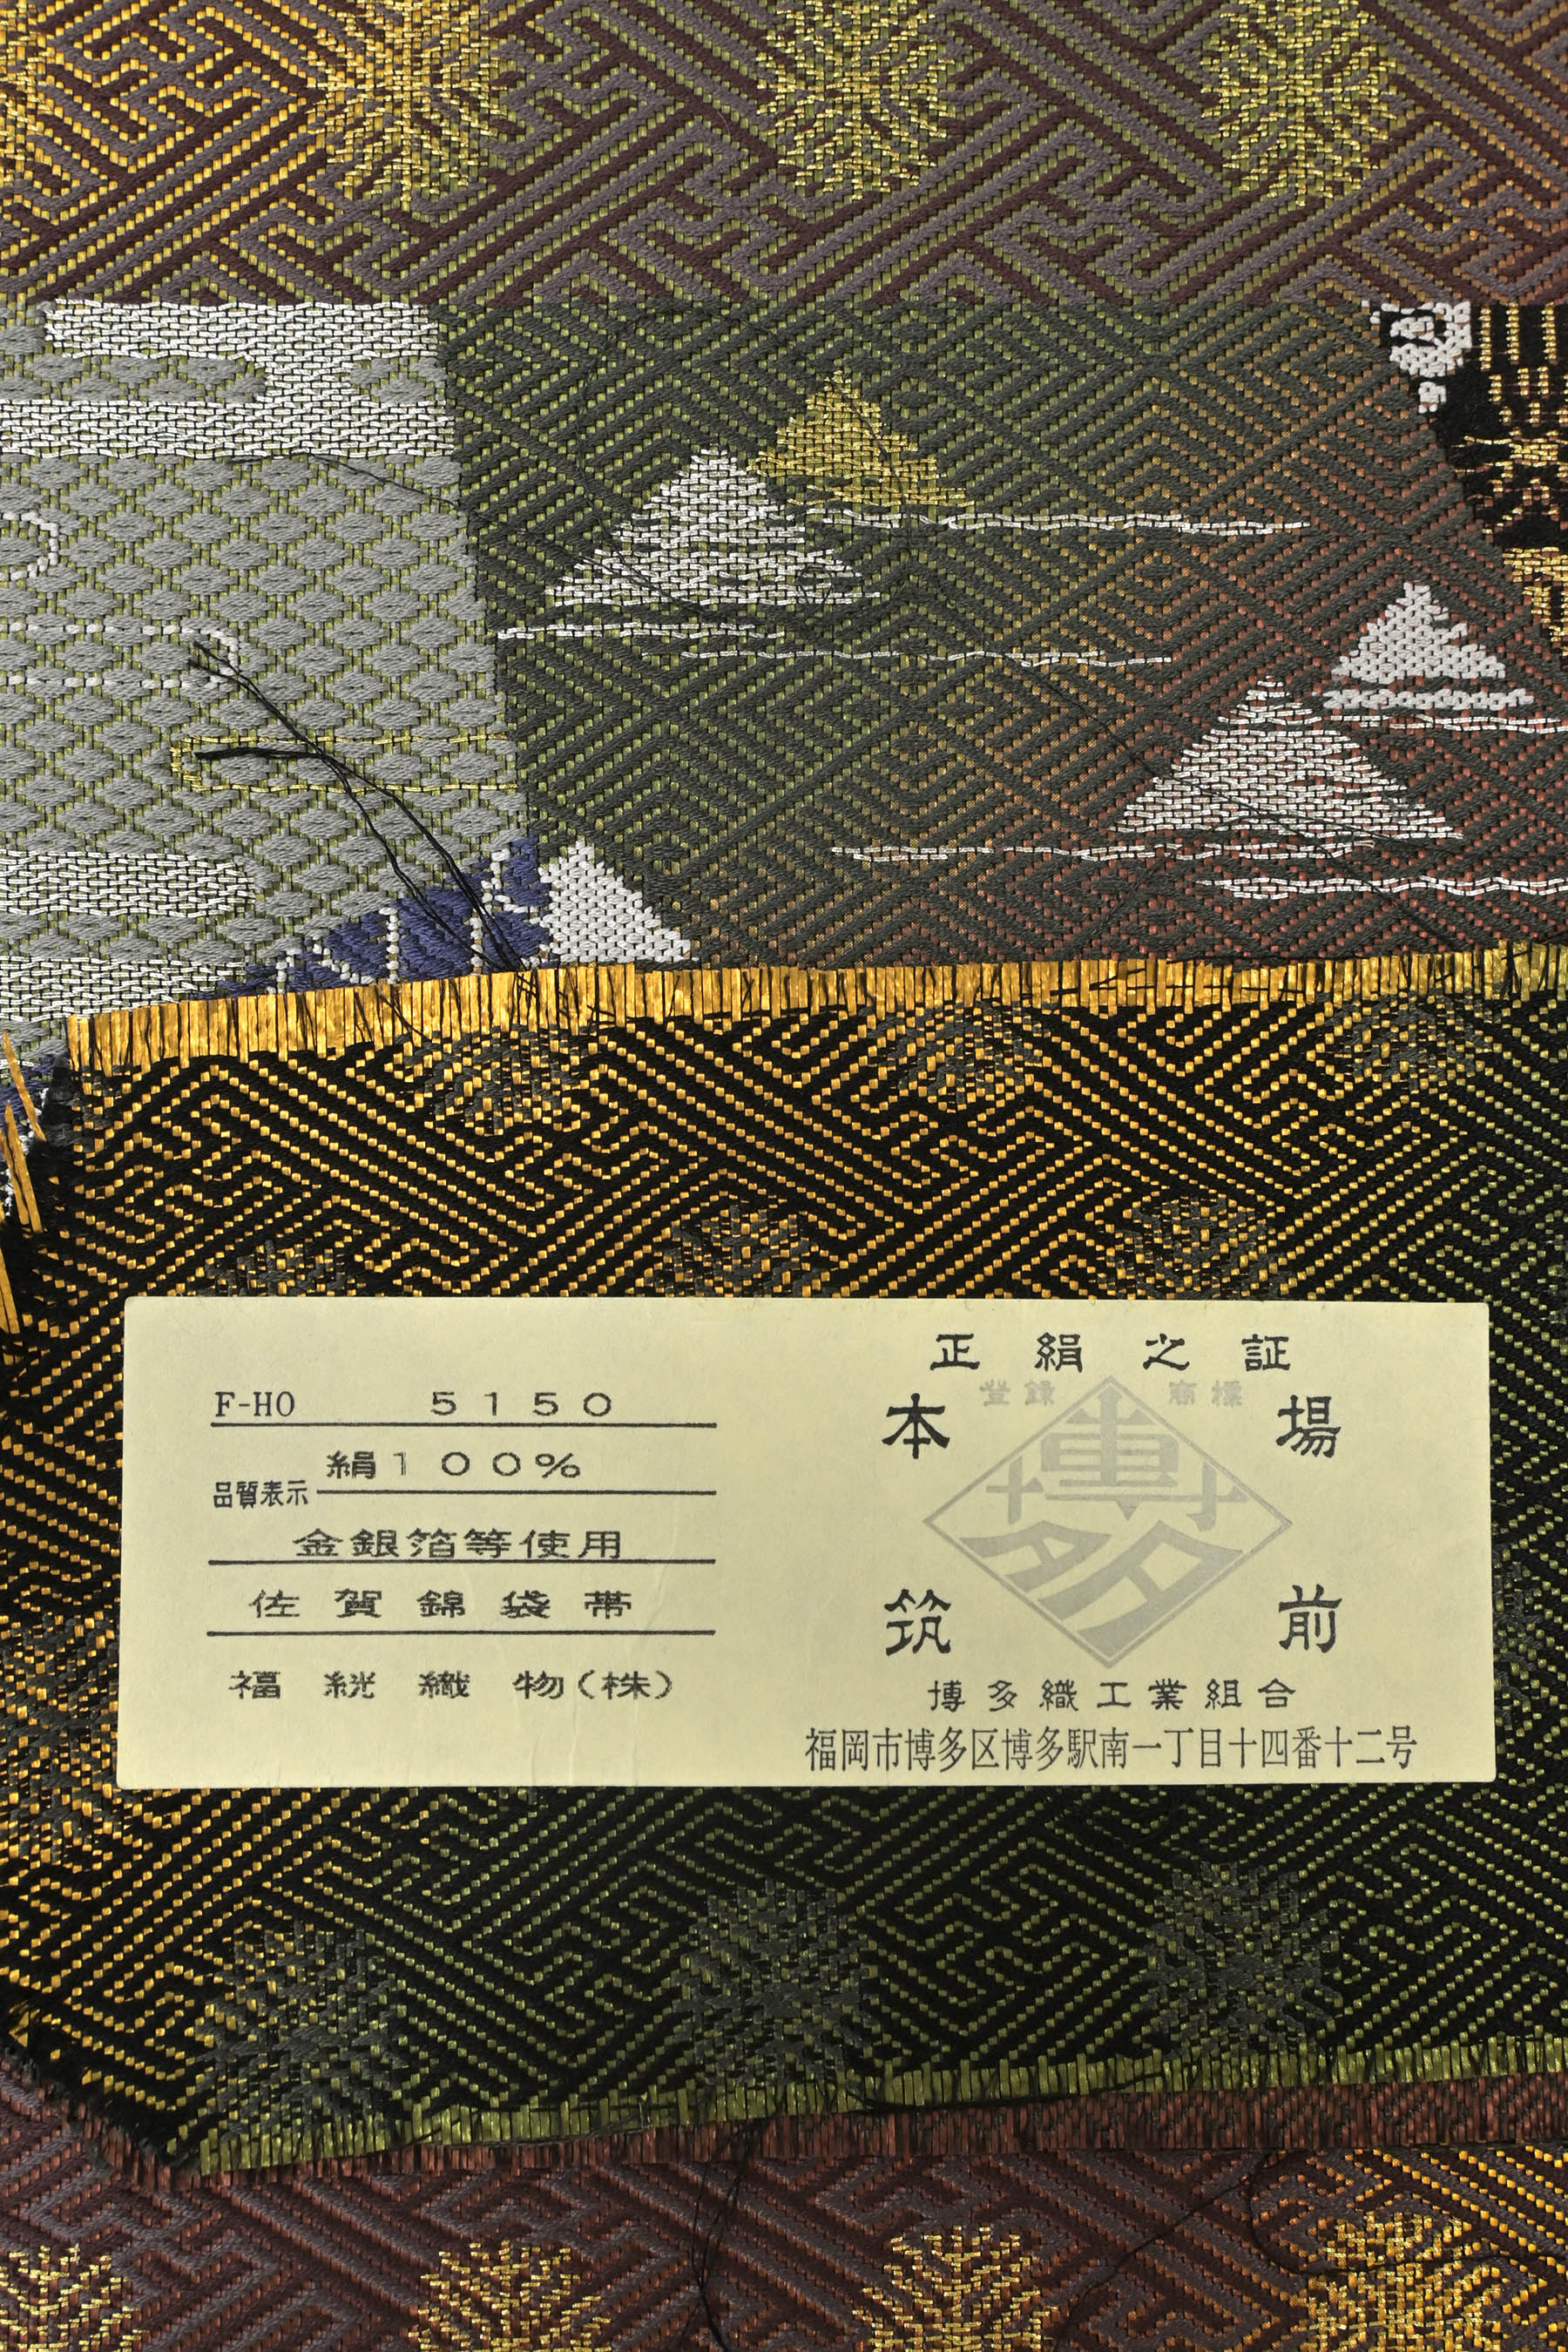 F-HO 5150
絹100%
品質表示
金銀箔等使用
佐賀錦袋帯
福絖織物(株)
正絹之証
登録 商標
本場
博多
筑前
博多織工業組合
福岡市博多区博多駅南一丁目十四番十二号